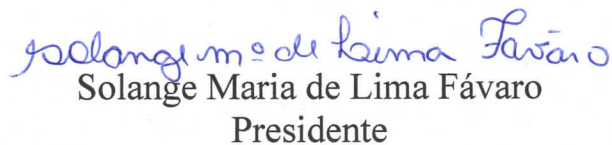 Solange mª de Lima Fávaro
Solange Maria de Lima Fávaro
Presidente